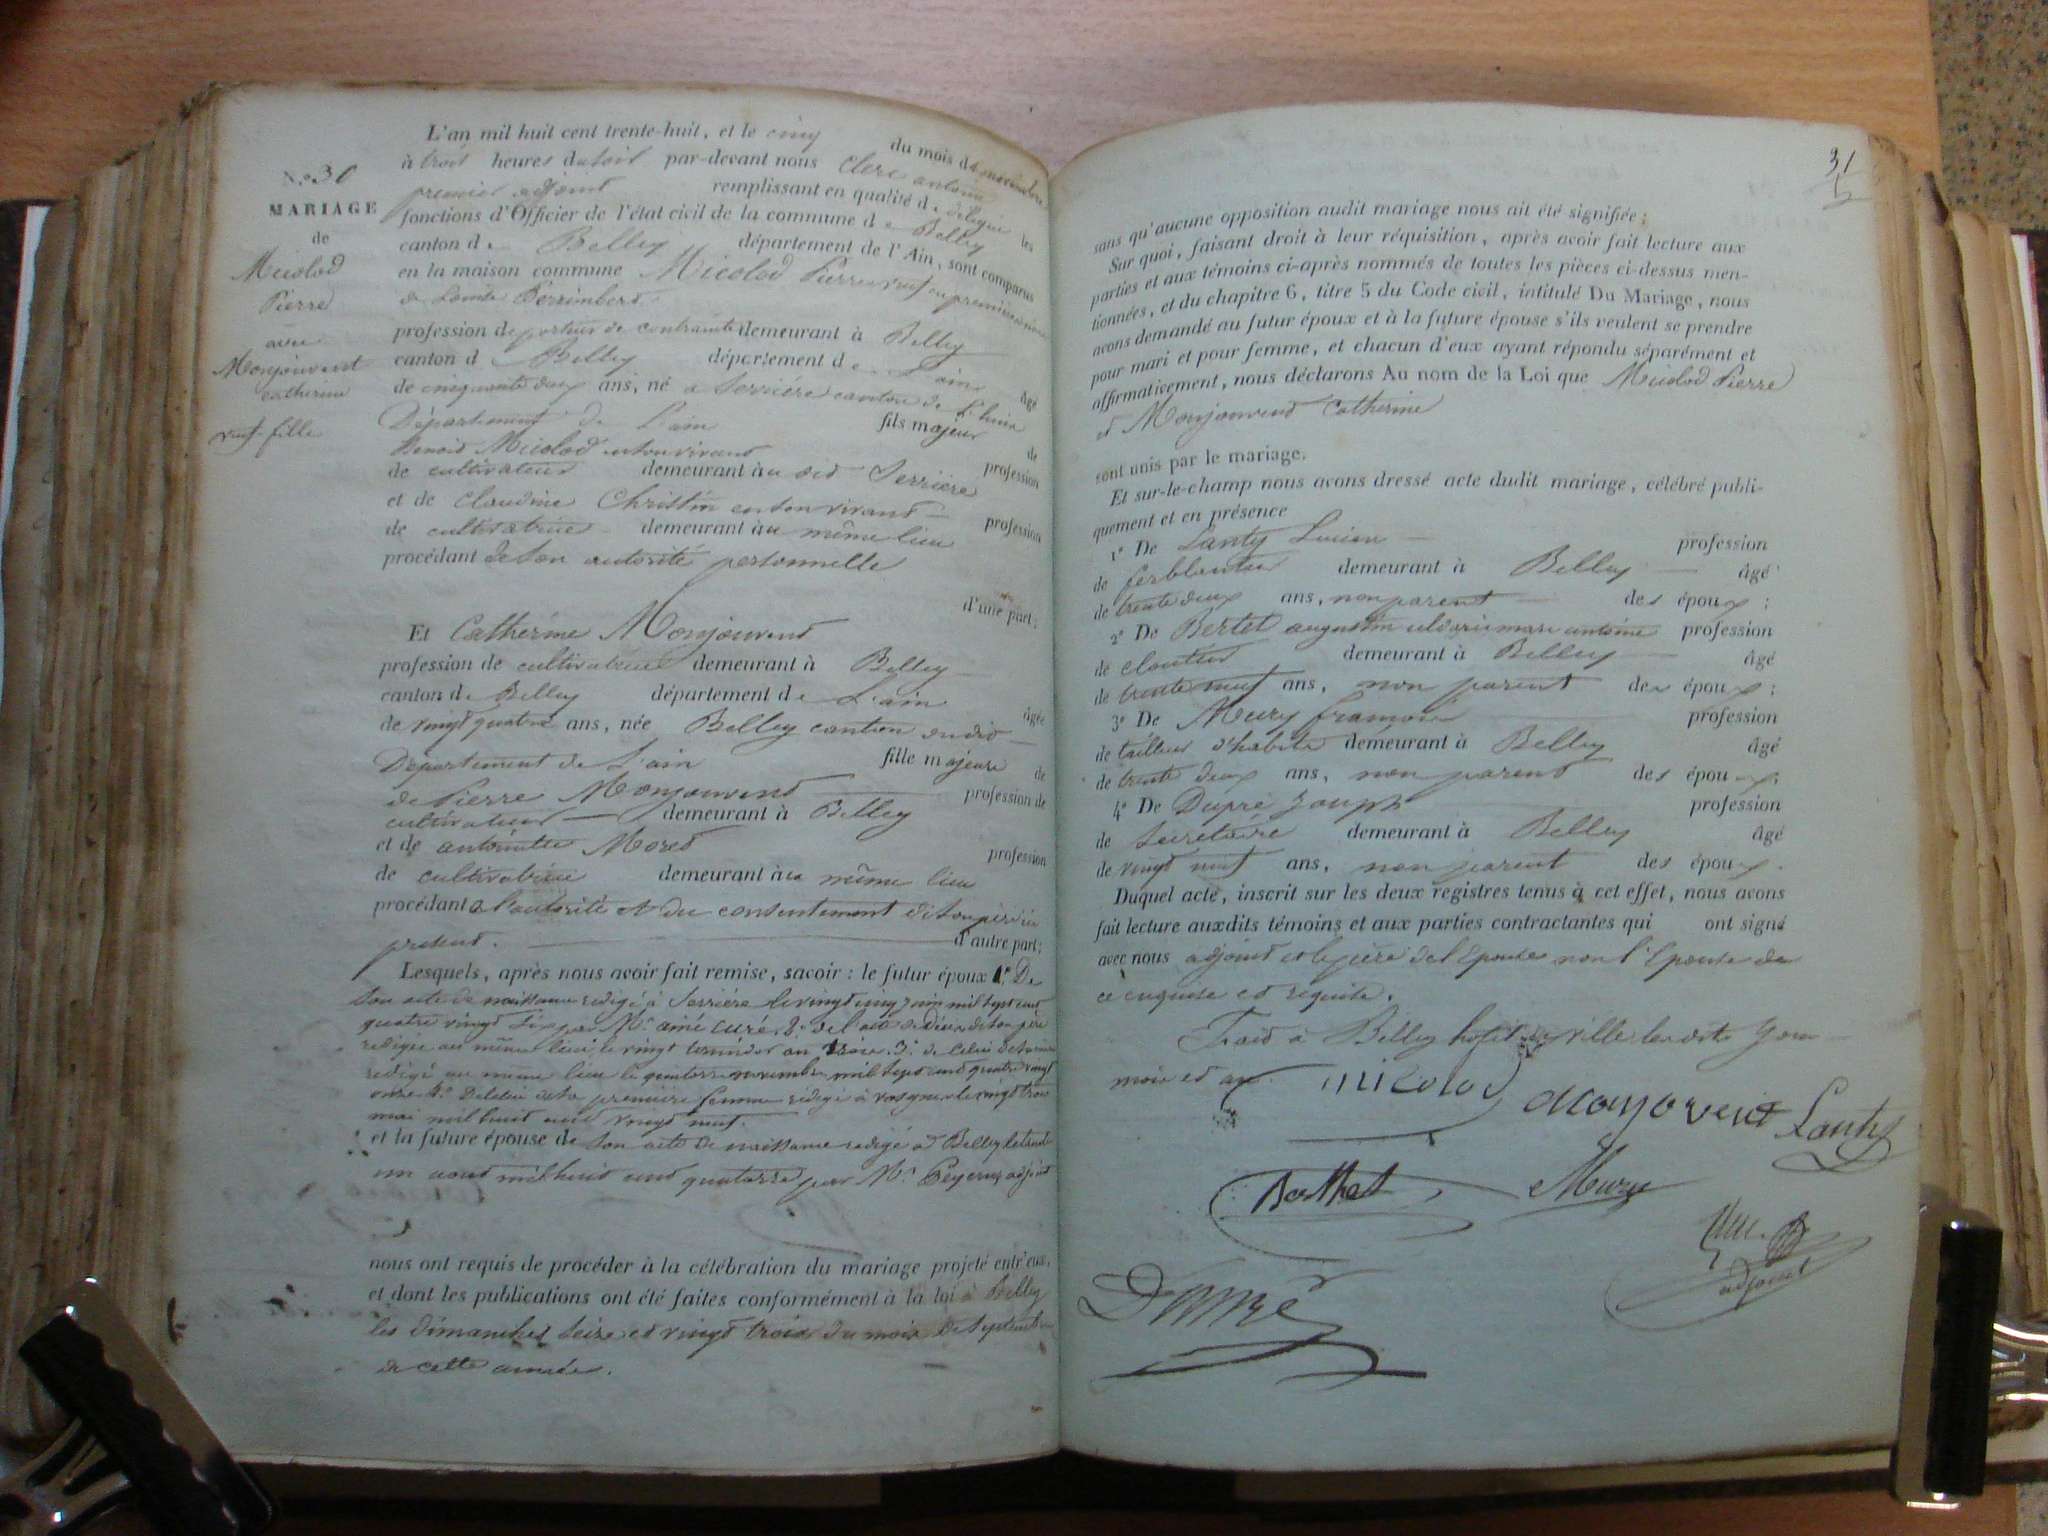 N.º 30
MARIAGE
de
Micolod
Pierre
avec
Monjouvent
catherine
veuf-fille
L'an mil huit cent trente-huit, et le cinq du mois de novembre
à trois heures du soir par-devant nous Clerc antoine
premier adjoint remplissant en qualité de délégué les
fonctions d'Officier de l'état civil de la commune de Belley
canton de Belley département de l'Ain, sont comparus
en la maison commune Micolod Pierre veuf en premières noces
de
profession de porteur de contrainte demeurant à Belley
canton d Belley département de L'ain âgé
de cinquante deux ans, né a Serriere canton de L'huis
Département de L'ain fils majeur de
Benoid Micolod en son vivant profession
de cultivateur demeurant au did Serriere
et de claudine Christin en son vivant profession
de cultivatrice demeurant au même lieu
procédant de son autorité personnelle
d'une part;
Et Catherine Monjouvend
profession de cultivatrice demeurant à Belley
canton de Belley département de L'ain âgée
de vingt quatre ans, née Belley canton dudid
Département de L'ain fille majeure de
de Pierre Monjouvend profession de
cultivateur demeurant à Belley
et de antoinette Mored profession
de cultivatrice demeurant au même lieu
procédant a l'autorité et du consentement de son père ici
présent. d'autre part;
Lesquels, après nous avoir fait remise, savoir: le futur époux 1.º De
son acte de naissance redigé à Serrière le vingt cinq juin mil sept cent
quatre vingt six par Mr. aimé curé. 2.º de l'acte de décès de son père
redigée au même lieu le vingt an trois. 3.º de celui de sa mère
redigé au même lieu le quatorze novembre mil sept cent quatre vingt
onze 4.º De celui de sa première femme redigé à le vingt trois
mai mil huit cent vingt neuf.
et la future épouse de son acte de naissance redigé à Belley le trente
un aout mil huit cent quatorze par Mr. adjoint
nous ont requis de procéder à la célébration du mariage projeté entr'eux,
et dont les publications ont été faites conformément à la loi à Belley
les dimanches seize et vingt trois du mois de septembre
de cette année.
31
sans qu'aucune opposition audit mariage nous ait été signifiée;
Sur quoi, faisant droit à leur réquisition, après avoir fait lecture aux
parties et aux témoins ci-après nommés de toutes les pièces ci-dessus men-
tionnées, et du chapitre 6, titre 5 du Code civil, intitulé Du Mariage, nous
avons demandé au futur époux et à la future épouse s'ils veulent se prendre
pour mari et pour femme, et chacun d'eux ayant répondu séparément et
affirmativement, nous déclarons Au nom de la Loi que Micolod Pierre
et Monjouvend Catherine
sont unis par le mariage.
Et sur-le-champ nous avons dressé acte dudit mariage, célébré publi-
quement et en présence
1º De Lanty Lucien profession
de ferblantier demeurant à Belley âgé
de trente deux ans, non parent des époux;
2º De Bertet augustin marc antoine profession
de cloutier demeurant à Belley âgé
de trente neuf ans, non parent des époux;
3º De Mury françois profession
de tailleur d'habits demeurant à Belley âgé
de trente deux ans, non parent des époux;
4º De Dupré Joseph profession
de Secretaire demeurant à Belley âgé
de vingt neuf ans, non parent des époux.
Duquel acte, inscrit sur les deux registres tenus à cet effet, nous avons
fait lecture auxdits témoins et aux parties contractantes qui ont signé
avec nous adjoint et le père de l'Epouse non l'Epouse de
ce enquise et requise.
Faid à Belley hotel de ville les dits jour
mois et an.
micolod monjovent Lanty
Berthet Mury
Dupré
adjoint